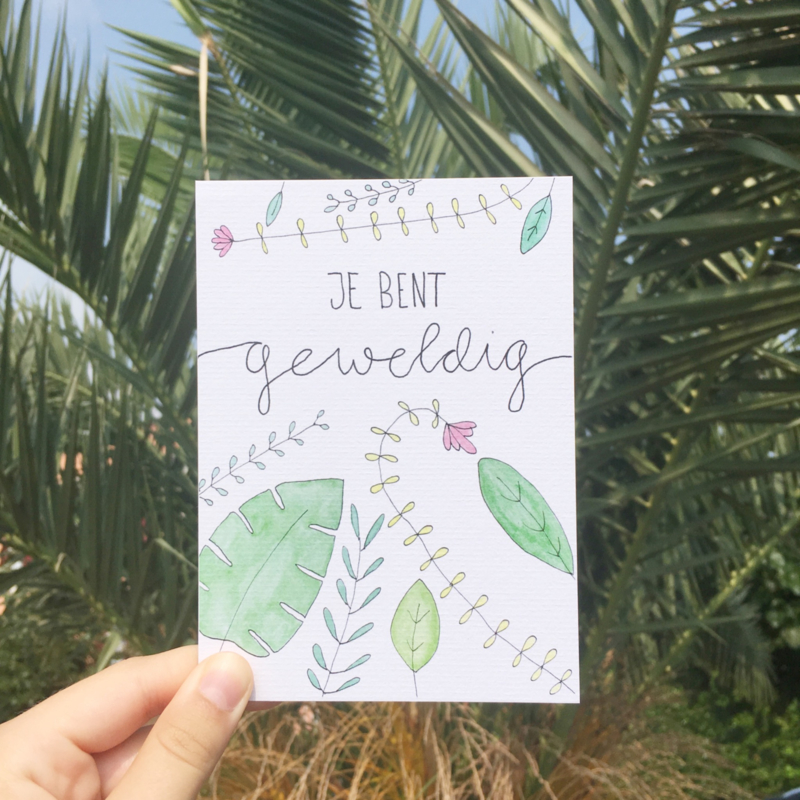 JE BENT
geweldig